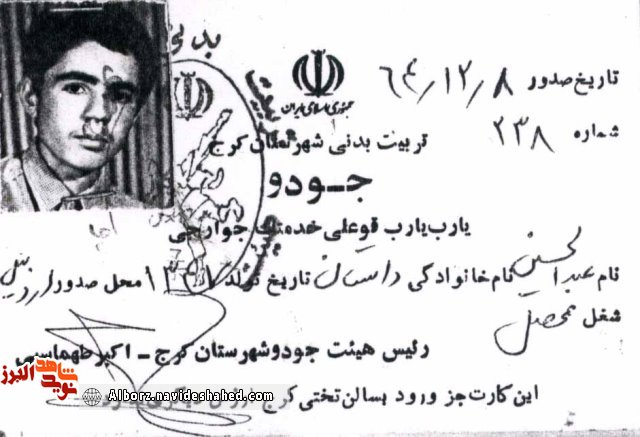 تاریخ صدور ۶۴/۱۲/۸
شماره ۲۳۸
جمهوری اسلامی ایران
تربیت بدنی شهرستان کرج
جودو
یارب یارب قوعلی خدمتك جوارحی
نام عبدالحسین نام خانوادگی داستان تاریخ تولد محل صدور
شغل محصل
رئیس هیئت جودو شهرستان کرج - اکبر طهماسبی
این کارت جز ورود بسالن تختی کرج
نوید شاهد البرز
Alborz.navideshahed.com